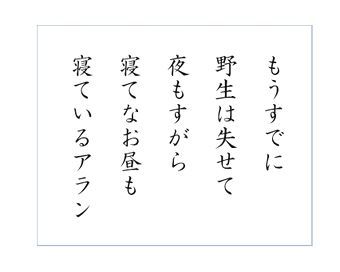 もうすでに
野生は失せて
夜もすがら
寝てなお昼も
寝ているアラン